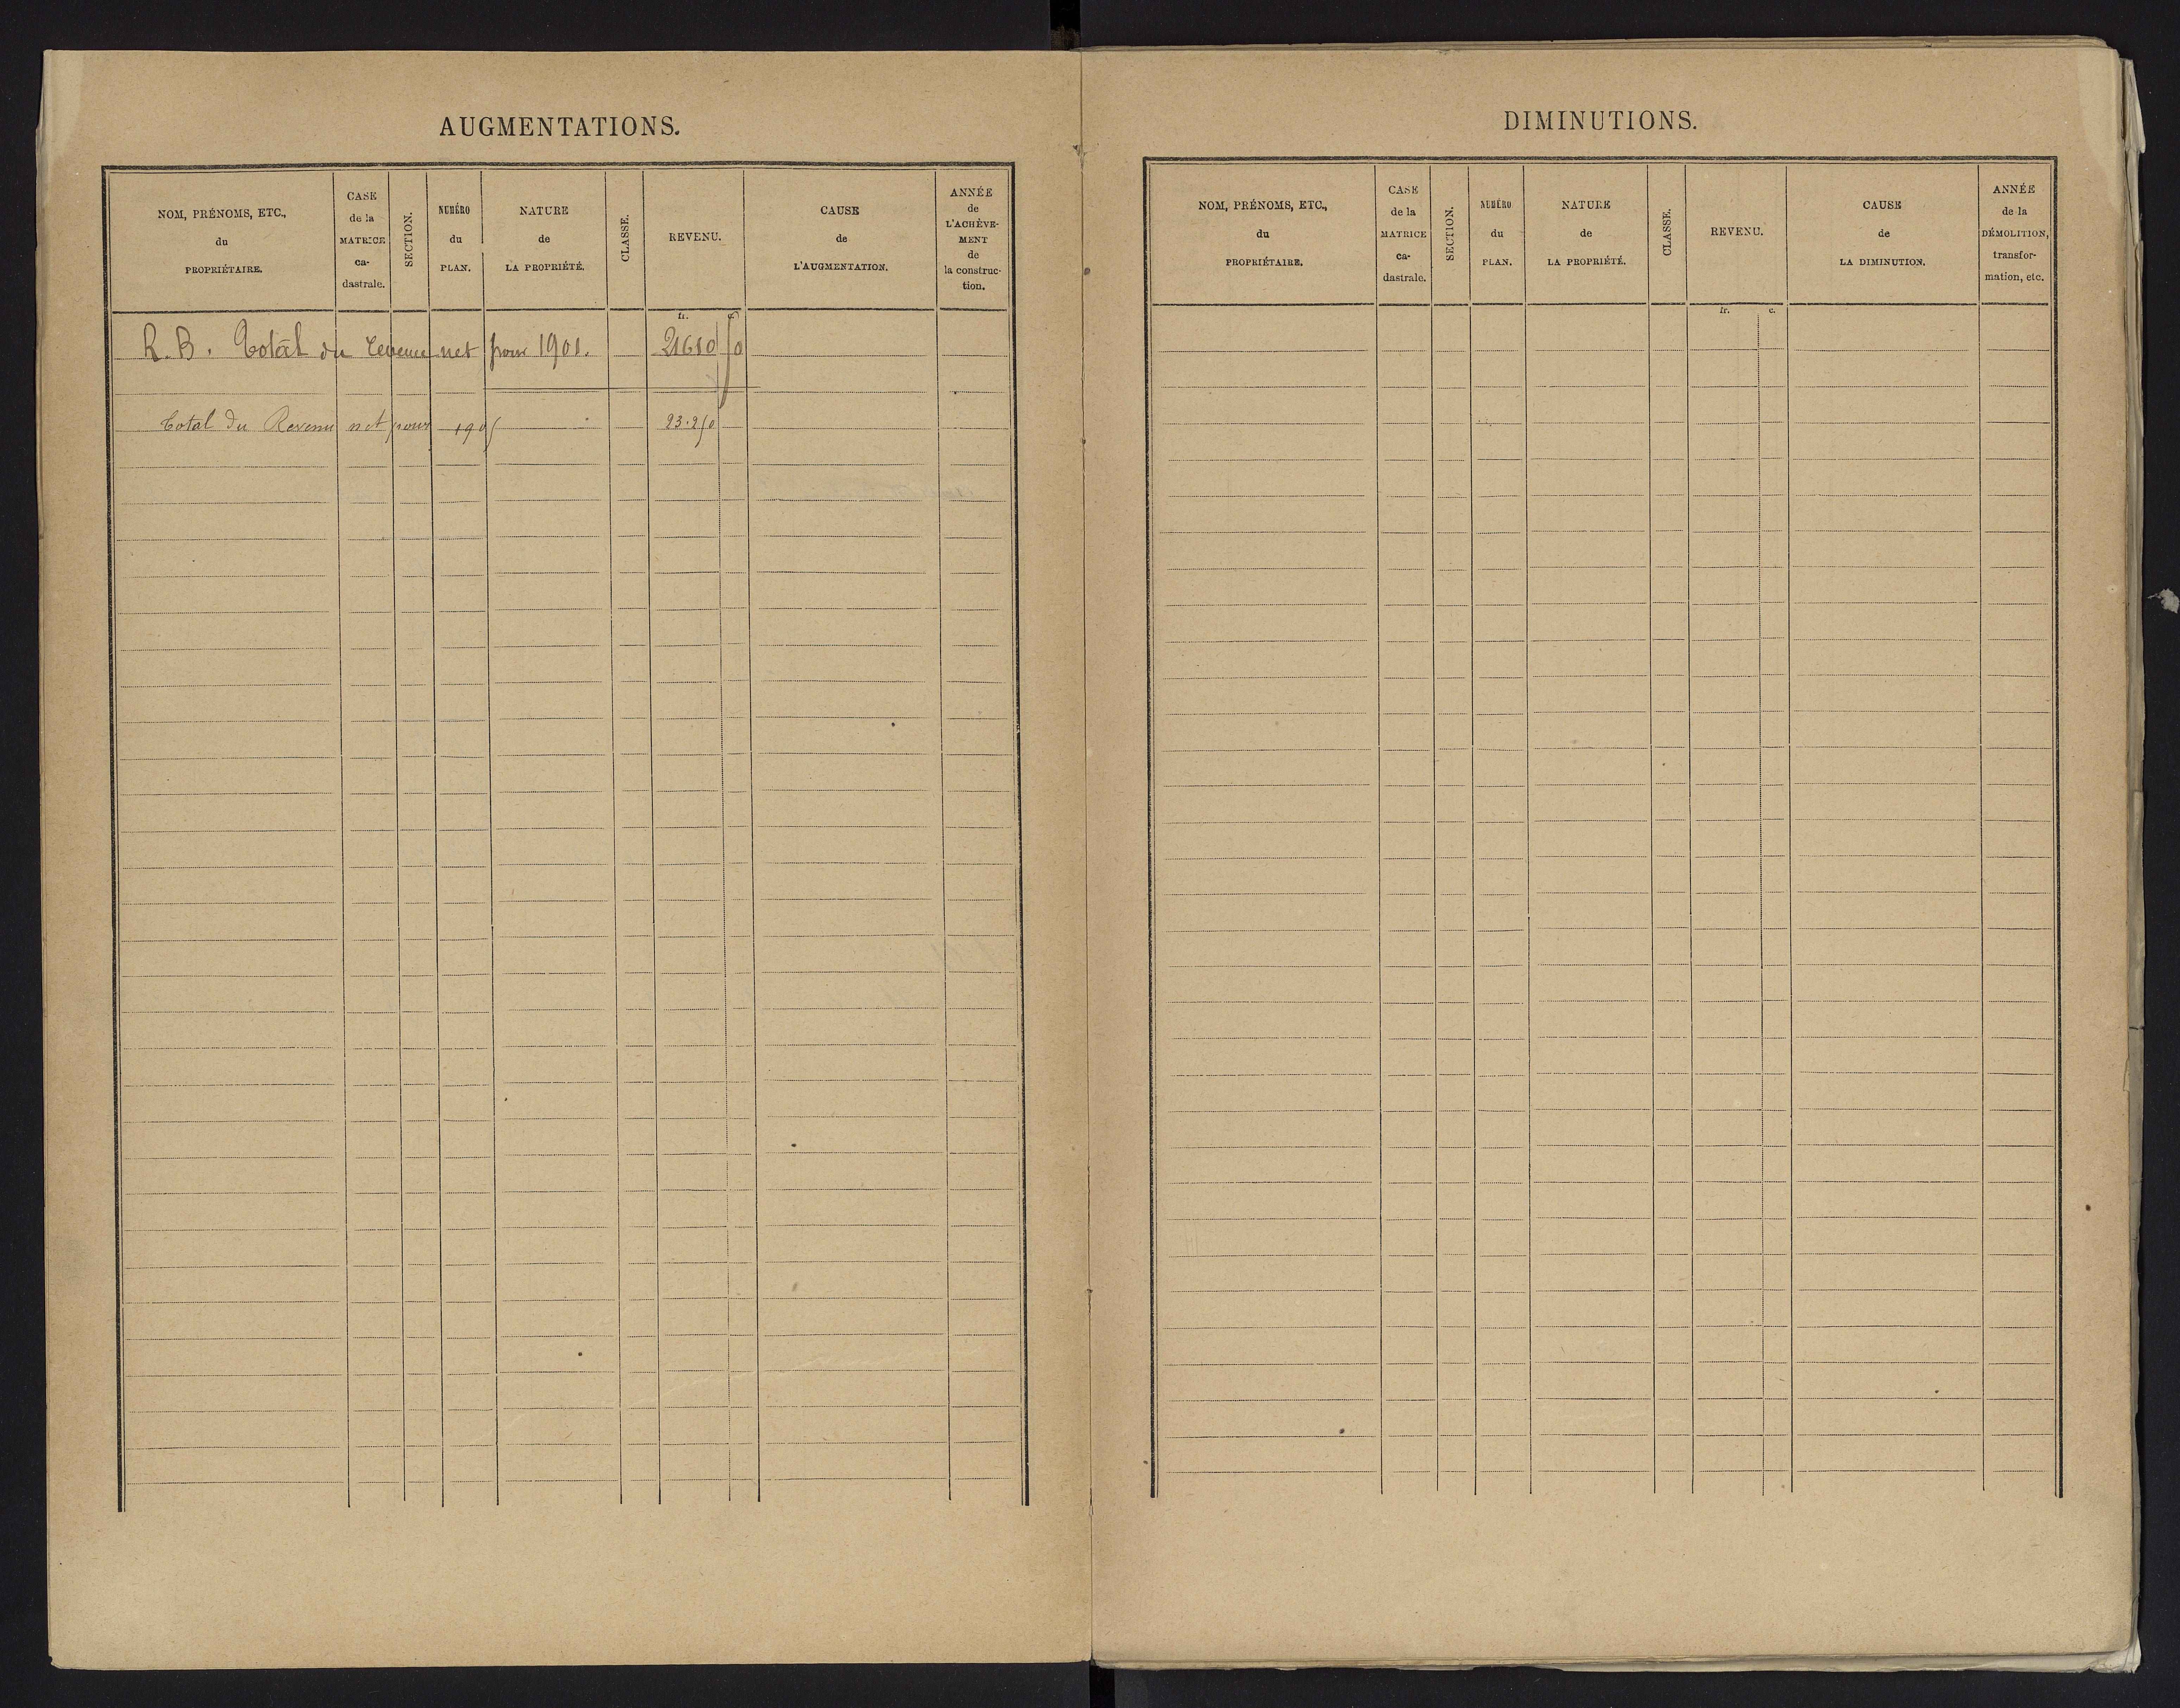 AUGMENTATIONS.
NOM, PRÉNOMS, ETC.,
du
PROPRIÉTAIRE.
CASE
de la
MATRICE
ca-
dastrale.
SECTION.
NUMÉRO
du
PLAN.
NATURE
de
LA PROPRIÉTÉ.
CLASSE.
REVENU.
CAUSE
de
L'AUGMENTATION.
ANNÉE
de
L'ACHÈVE-
MENT
de
la construc-
tion.
fr. c.
R. B. Total du revenu net pour 1901. 21610 50
Total du Revenu net pour 1905 23.250
DIMINUTIONS.
NOM, PRÉNOMS, ETC.,
du
PROPRIÉTAIRE.
CASE
de la
MATRICE
ca-
dastrale.
SECTION.
NUMÉRO
du
PLAN.
NATURE
de
LA PROPRIÉTÉ.
CLASSE.
REVENU.
CAUSE
de
LA DIMINUTION.
ANNÉE
de la
DÉMOLITION,
transfor-
mation, etc.
fr. c.